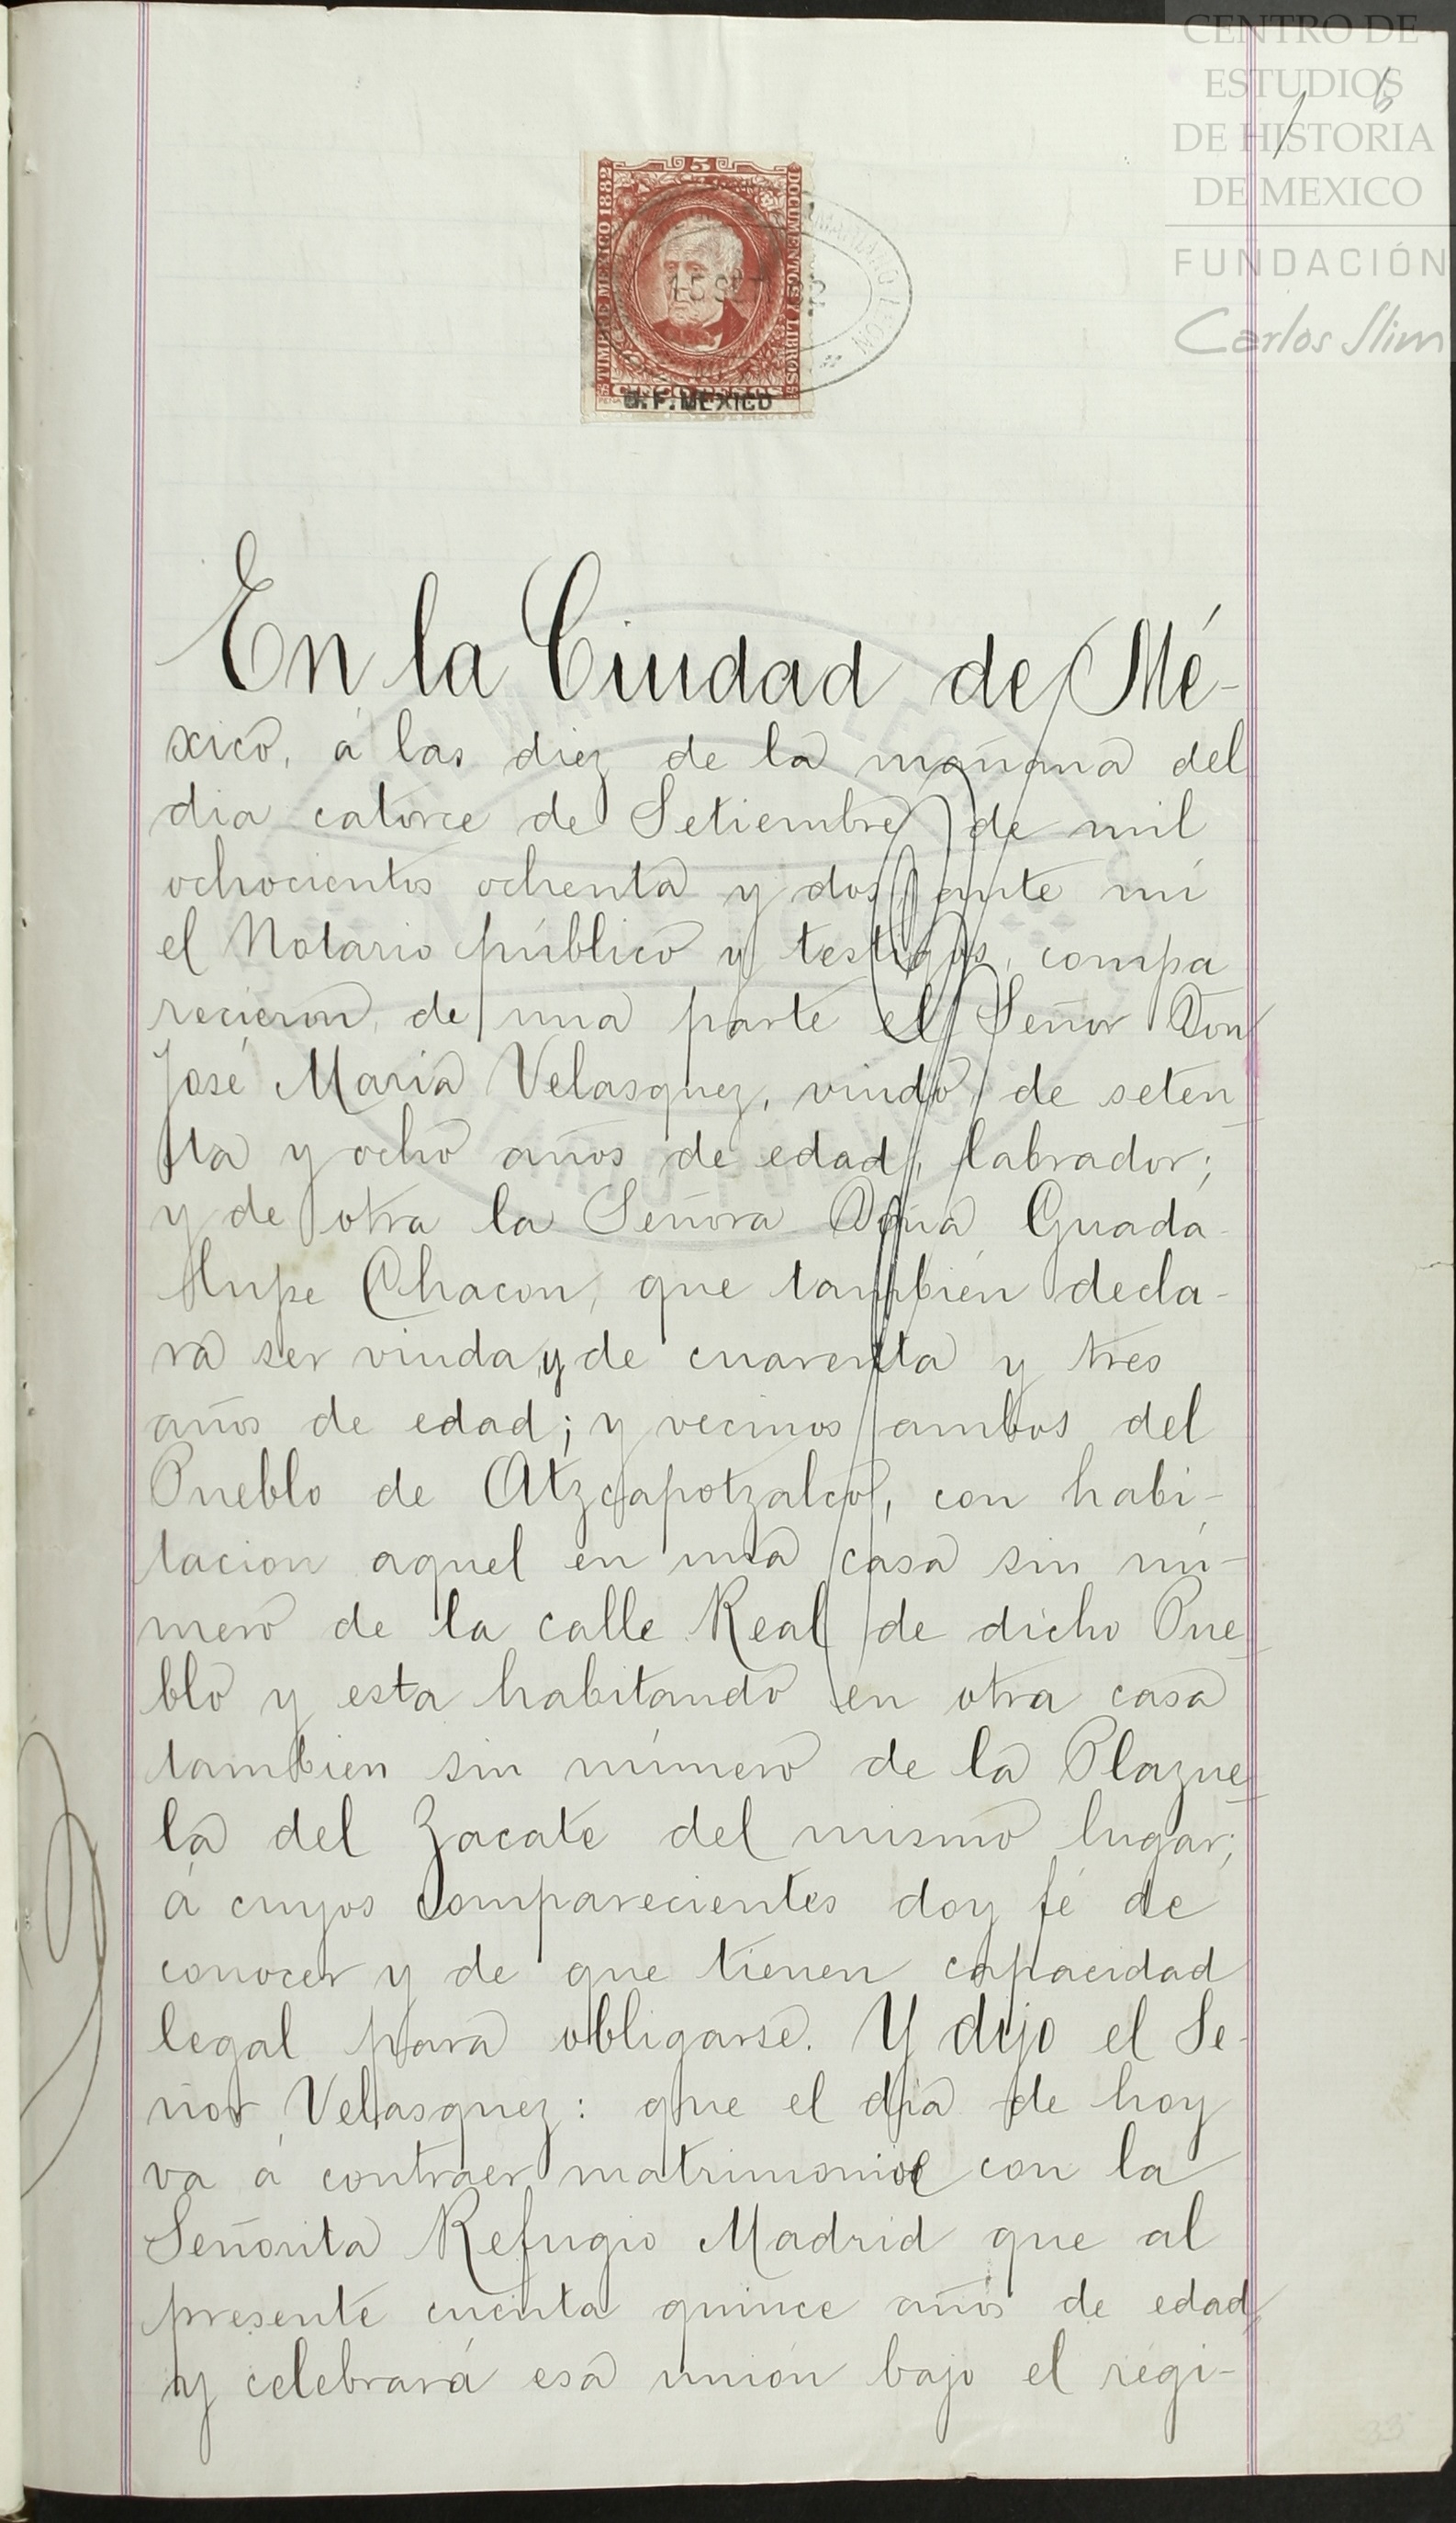 CENTRO DE
ESTUDIOS
DE HISTORIA
DE MEXICO
FUNDACIÓN
Carlos Slim
5
TIMBRE MEXICO 1882
DOCUMENTOS Y LIBROS
15 SET
CINCO PESOS
D.F. MEXICO
En la Ciudad de Mé-
xico, á las diez de la mañana del
dia catorce de Setiembre de mil
ochocientos ochenta y dos, ante mí
el Notario público y testigos, compa
recieron, de una parte el Señor Don
José María Velasquez, viudo, de seten
ta y ocho años de edad, labrador;
y de otra la Señora Doña Guada-
lupe Chacon, que también decla-
ra ser viuda y de cuarenta y tres
años de edad; y vecinos ambos del
Pueblo de Atzcapotzalco, con habi-
tacion aquel en una casa sin nú-
mero de la calle Real de dicho Pue
blo y esta habitando en otra casa
tambien sin número de la Plazue
la del Zacate del mismo lugar;
á cuyos comparecientes doy fé de
conocer y de que tienen capacidad
legal para obligarse. Y dijo el Se-
ñor Velasquez: que el dia de hoy
va á contraer matrimonio con la
Señorita Refugio Madrid que al
presente cuenta quince años de edad,
y celebrará esa unión bajo el régi-